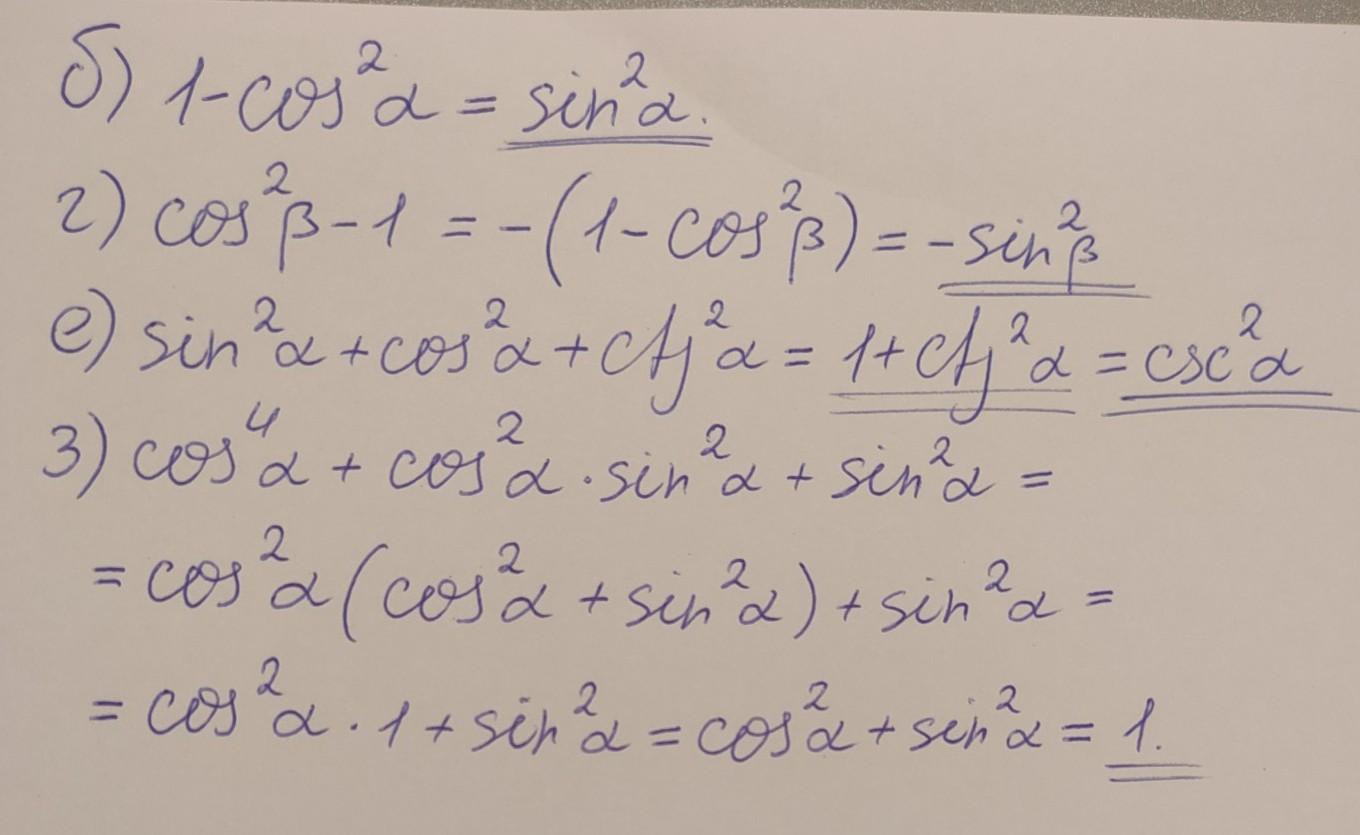 б) 1-cos²α = sin²α.
г) cos²β-1 = -(1-cos²β) = -sin²β
е) sin²α+cos²α+ctg²α = 1+ctg²α = csc²α
з) cos⁴α + cos²α·sin²α + sin²α =
= cos²α(cos²α + sin²α) + sin²α =
= cos²α·1 + sin²α = cos²α + sin²α = 1.